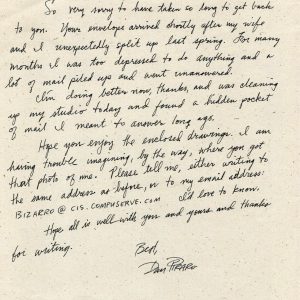 So very sorry to have taken so long to get back
to you. Your envelope arrived shortly after my wife
and I unexpectedly split up last spring. For many
months I was too depressed to do anything and a
lot of mail piled up and went unanswered.
I'm doing better now, thanks, and was cleaning
up my studio today and found a hidden pocket
of mail I meant to answer long ago.
Hope you enjoy the enclosed drawings. I am
having trouble imagining, by the way, where you got
that photo of me. Please tell me, either writing to
the same address as before, or to my email address:
BIZARRO @ CIS.COMPUSERVE.COM I'd love to know.
Hope all is well with you and yours and thanks
for writing.
Best,
Dan Piraro